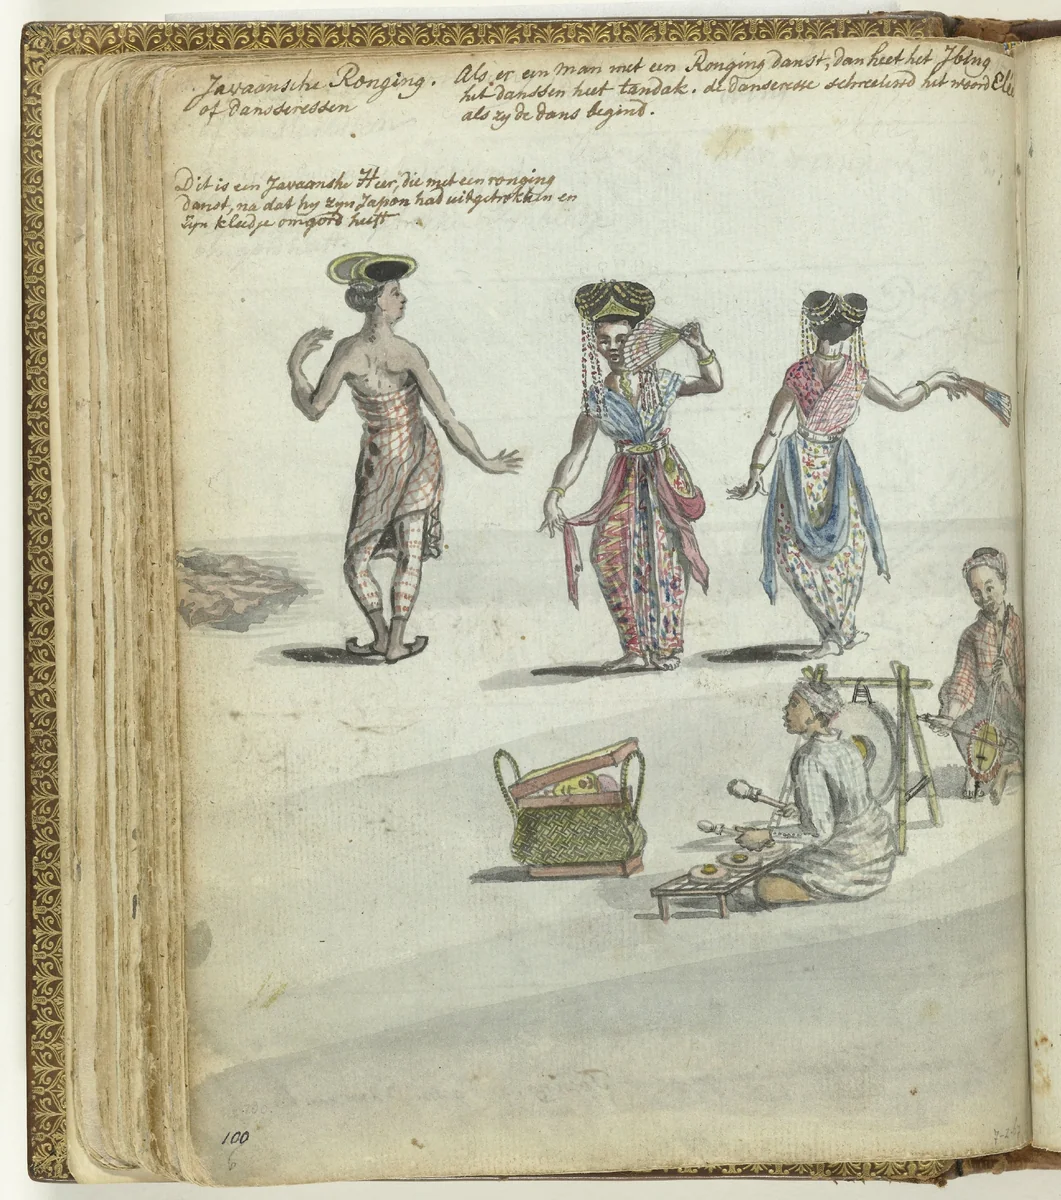 Javaansche Ronging.
of Dansseressen
Als er een man met een Ronging danst, dan heet het Ibing
het danssen heet tandak. de danseresse schreeuwd het woord Elie
als zy de dans begind.
Dit is een Javaanshe Heer, die met een ronging
danst, na dat hy zyn Japon had uitgetrokken en
zyn kleedje omgord heeft
100